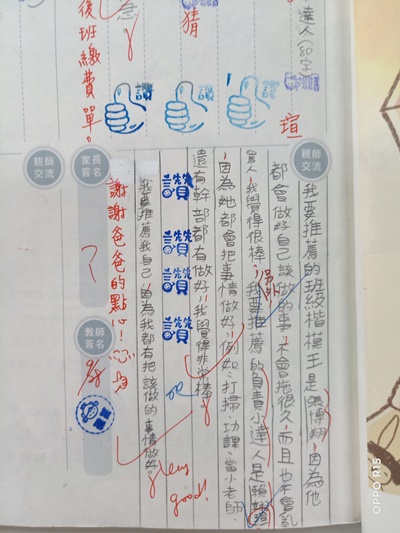 達人(80字
猜
急
後班繳費單。
讚
讚
讚
瑄
親師交流
我要推薦的班級楷模王是張博翔,因為他
都會做好自己該做的事,不會拖很久,而且也不會亂
罵人,我覺得很棒,另外,我要推薦的負責小達人是
因為她都會把事情做好,例如:打掃、功課、當小老師,
還有幹部都有做好,我覺得非常棒。
讚
讚
讚
讚
ok
我要推薦我自己,因為我都有把該做的事情做好。
Very good!
家長簽名
謝謝爸爸的點心!
教師簽名
親師交流
OPPO R15